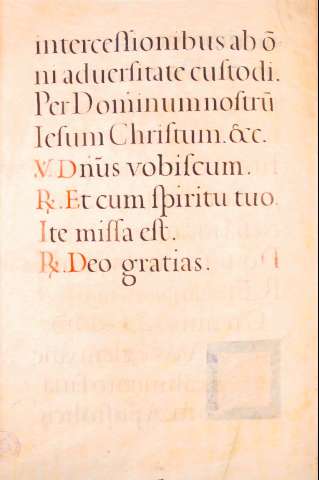 interceſſionibus ab ō-
ni aduerſitate cuſtodi.
Per Dominum noſtrū
Ieſum Chriſtum. &c.
℣. Dn̄us vobiſcum.
℟. Et cum ſpiritu tuo.
Ite miſſa eſt.
℟. Deo gratias.